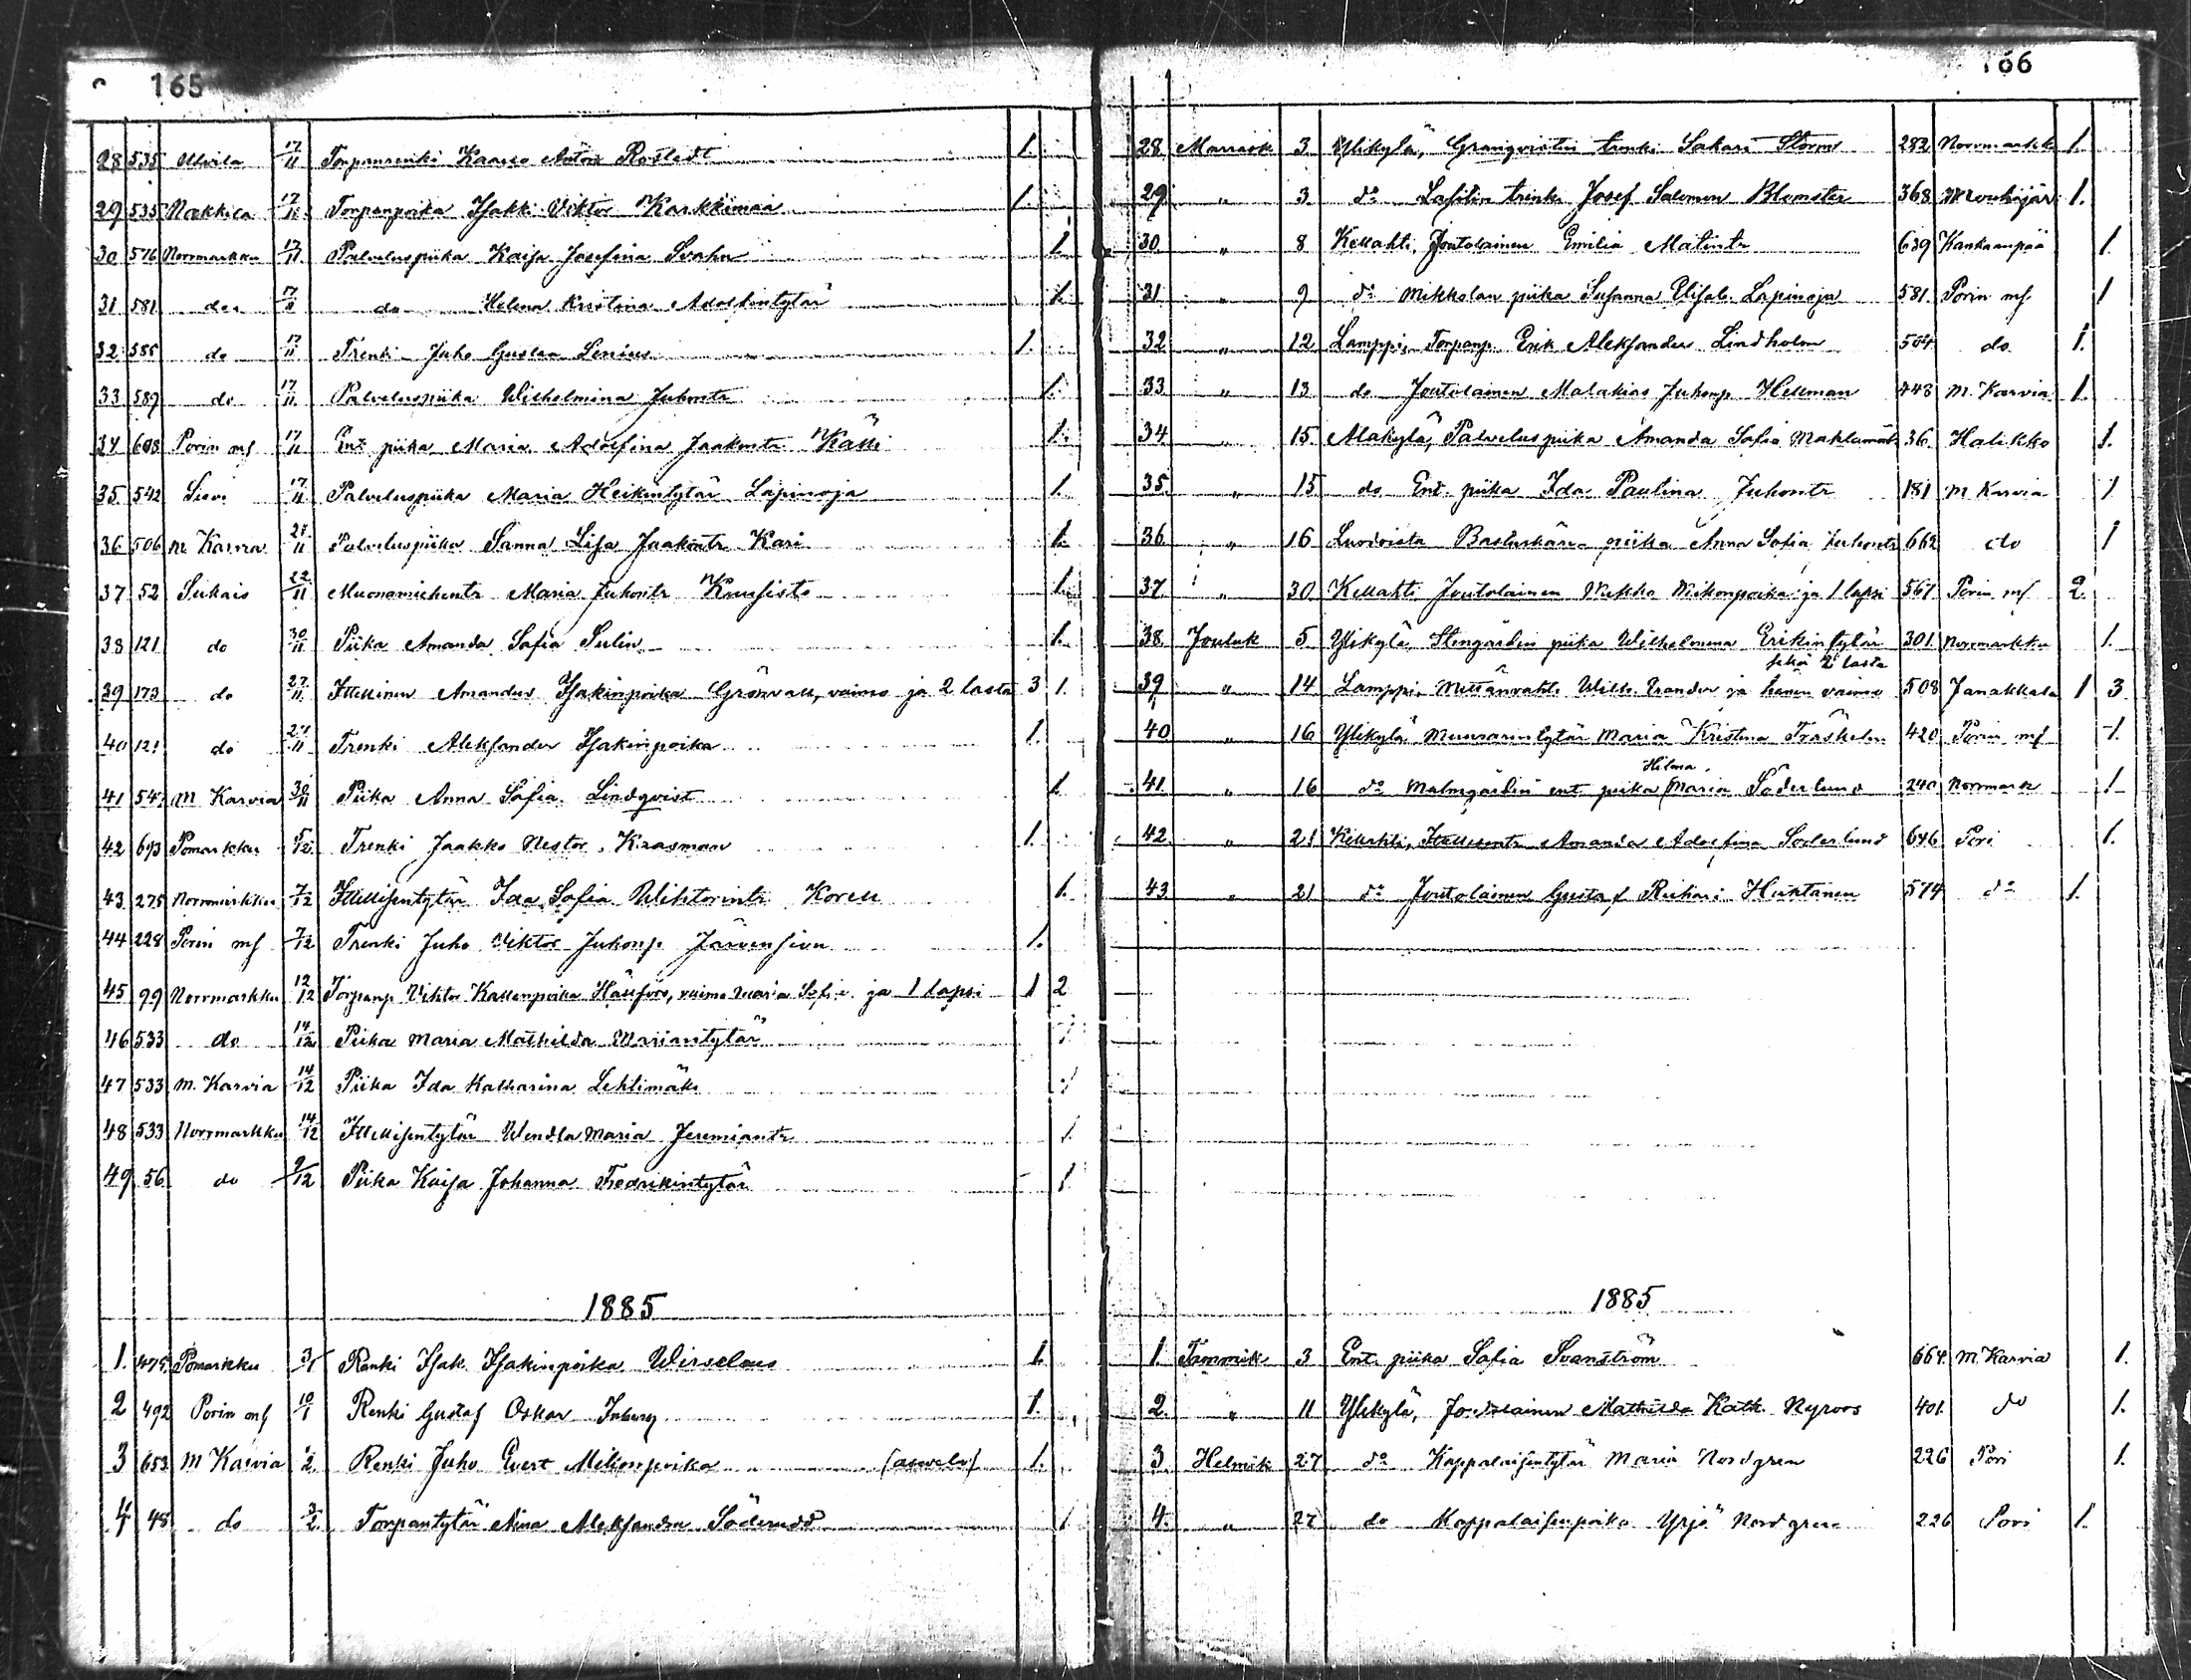 165
28 535 Ulvila 17/11 Torpanrenki Kaarlo Anton Rostedt 1.
29 535 Nakkila 17/11 Torpanpoika Isakki Viktor Karkkimaa 1.
30 576 Norrmarkku 17/11 Palveluspiika Kaisa Josefina Svahn 1.
31 581 do 17/11 do Helena Kristina Adolfintytär 1.
32 585 do 17/11 Trenki Juho Gustaa Lenius 1.
33 589 do 17/11 Palveluspiika Wilhelmina Juhontr 1.
34 608 Porin ms 17/11 Ent piika Maria Adolfina Jaakontr Källi 1.
35 542 Sievi 17/11 Palveluspiika Maria Heikintytär Lapinoja 1.
36 506 m. Karvia 21/11 Palveluspiika Sanna Lisa Jaakontr Kari 1.
37 52 Siikais 22/11 Muonamiehentr Maria Juhontr Kuusisto 1.
38 121 do 30/11 Piika Amanda Sofia Sulin 1.
39 173 do 27/11 Itsellinen Amandus Isakinpoika Grönvall, vaimo ja 2 lasta 3 1.
40 121 do 27/11 Trenki Aleksander Isakinpoika 1.
41 547 M Karvia 30/11 Piika Anna Sofia Lindqvist 1.
42 693 Pomarkku 5/12 Trenki Jaakko Nestor Krasman 1.
43 275 Norrmarkku 7/12 Itsellisentytär Ida Sofia Wihtorintr Korell 1.
44 228 Porin ms 7/12 Trenki Juho Viktor Juhonp Järvensivu 1.
45 99 Norrmarkku 12/12 Torpanp Viktor Kallenpoika Hällfors, vaimo Maria Sofia ja 1 lapsi 1 2
46 533 do 14/12 Piika Maria Mathilda Mariantytär 1
47 533 M. Karvia 14/12 Piika Ida Katharina Lehtimäki 1
48 533 Norrmarkku 14/12 Itsellisentytär Wendla Maria Jeremiantr 1.
49 56 do 9/12 Piika Kaisa Johanna Fredrikintytär 1.
1885
1. 475 Pomarkku 3/1 Renki Isak Isakinpoika Wirvelaus 1.
2 492 Porin ms 10/1 Renki Gustaf Oskar Inberg 1.
3 653 M Karvia /2 Renki Juho Evert Mikonpoika 1.
4 48 do 3/2 Torpantytär Aina Aleksandra Söderudd 1
166
28 Marrask 3 Ylikylä, Granqvistin trenki Sakari Storm 282 Norrmarkk 1.
29 " 3 do Lassilin trenki Josef Salomon Blomster 368 Mouhijär 1.
30 " 8 Kellahti, Joutolainen Emilia Matintr 639 Kankaanpää 1.
31 " 9 do Mikkolan piika Susanna Elisab. Lapinoja 581 Porin ms 1
32 " 12 Lamppi, Torpanp. Erik Aleksander Lindholm 504 do 1.
33 " 13 do Joutolainen Malakias Juhonp Hellman 448 M. Karvia 1.
34 " 15 Alakylä, Palveluspiika Amanda Sofia Mahlamäki 36 Halikko 1.
35 " 15 do Ent. piika Ida Paulina Juhontr 181 M Karvia 1
36 " 16 Luodoista piika Anna Sofia Juhontr 662 do 1
37 " 30 Kellahti Joutolainen Mikko Mikonpoika ja 1 lapsi 567 Porin ms 2.
38 Jouluk 5 Ylikylä, Stengårdin piika Wilhelmina Erikintytär 301 Norrmarkku 1.
sekä 2 lasta
39 " 14 Lamppi, Metsänvahti Wilh. Trander ja hänen vaimo 508 Janakkala 1 3
40 " 16 Ylikylä Muurarintytär Maria Kristina Träskelin 420 Porin ms 1.
Hilma
41 " 16 do Malmgårdin ent piika Maria Söderlund 240 Norrmark 1
42 " 21 Kellahti, Itsellisentr Amanda Adolfina Soderlund 646 Pori 1.
43 " 21 do Joutolainen Gustaf Rikhari Huhtanen 574 do 1.
1885
1. Tammik 3 Ent. piika Sofia Svanström 664 M. Karvia 1.
2. " 11 Ylikylä, Joutolainen Mathilda Kath. Nyroos 401 do 1.
3 Helmik 27 do Kappalaisentytär Maria Nordgren 226 Pori 1.
4. " 27 do Kappalaisenpoika Yrjö Nordgren 226 Pori 1.